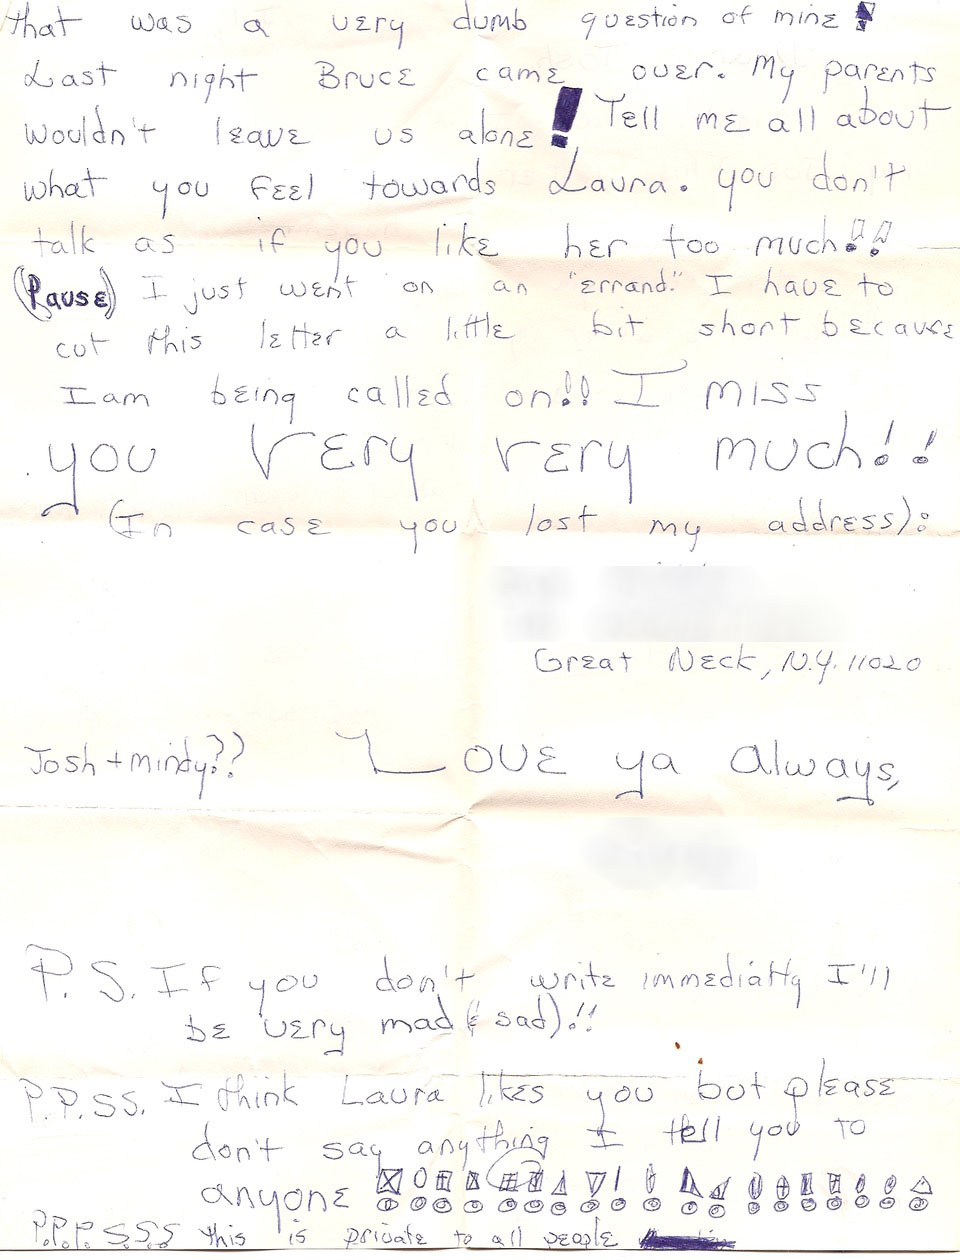 that was a very dumb question of mine!
Last night Bruce came over. My parents
wouldn't leave us alone! Tell me all about
what you feel towards Laura. you don't
talk as if you like her too much!!
(Pause) I just went on an "errand." I have to
cut this letter a little bit short because
I am being called on!! I miss
you very very much!!
(In case you lost my address):
Great Neck, N.Y. 11020
Josh + mindy?? Love ya always,
P.S. If you don't write immediatly I'll
be very mad (& sad)!!
P.P.SS. I think Laura likes you but please
don't say anything I tell you to
anyone !!!!!!!!!!!!!!!!!!
P.P.P.S.S.S this is private to all people